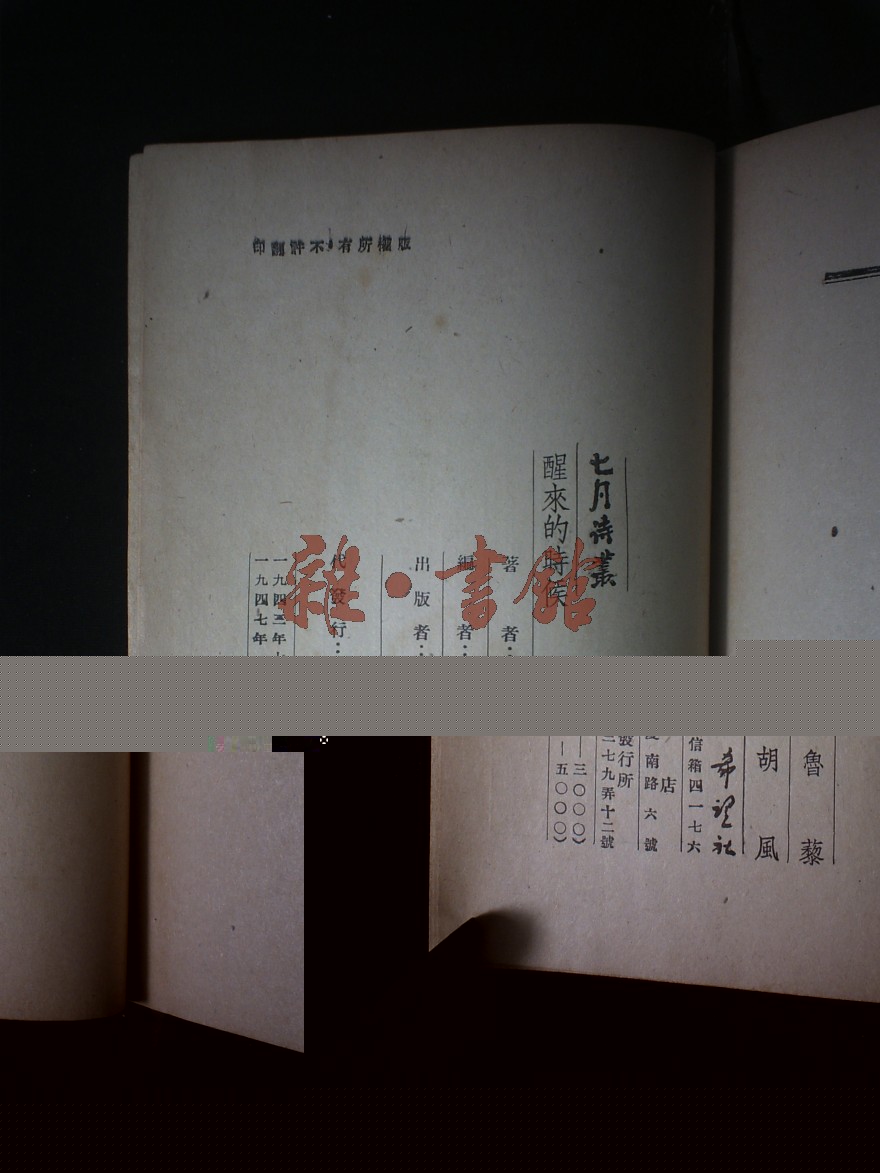 版權所有•不許翻印
七月詩叢
醒來的時候
著 者:
編 者:
出 版 者:
代 發 行:
一九四三年
一九四七年
雜•書館
魯 藜
胡 風
希望社
信箱四一七六
店
南路六號
發行所
三七九弄十二號
—三〇〇〇)
—五〇〇〇)